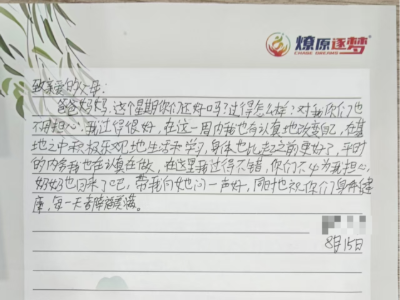 燎原逐梦
致亲爱的父母:
爸爸妈妈,这个星期你们还好吗?过得怎么样?对我你们也
不用担心,我过得很好,在这一周内我也有认真地改变自己,在基
地之中积极乐观地生活和学习,身体也比来之前更好了,平时
的内务我也在认真在做,在这里我过得不错,你们不必为我担心,
奶奶也回来了吧,带我向她问一声好,同时也祝你们身体健
康,每一天幸福美满。
8月15日